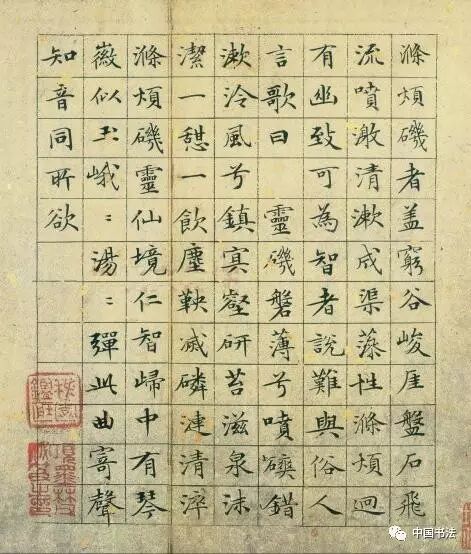 滌煩磯者盖窮谷峻厓盤石飛
流噴激清漱成渠藻性滌煩迴
有幽致可為智者說難與俗人
言歌曰 靈磯磐薄兮噴錯
漱泠風兮鎮冥壑研苔滋泉沫
潔一憩一飲塵鞅滅磷漣清淬
滌煩磯靈仙境仁智歸中有琴
徽似玉峨〻湯〻彈此曲寄聲
知音同所欲
中国书法